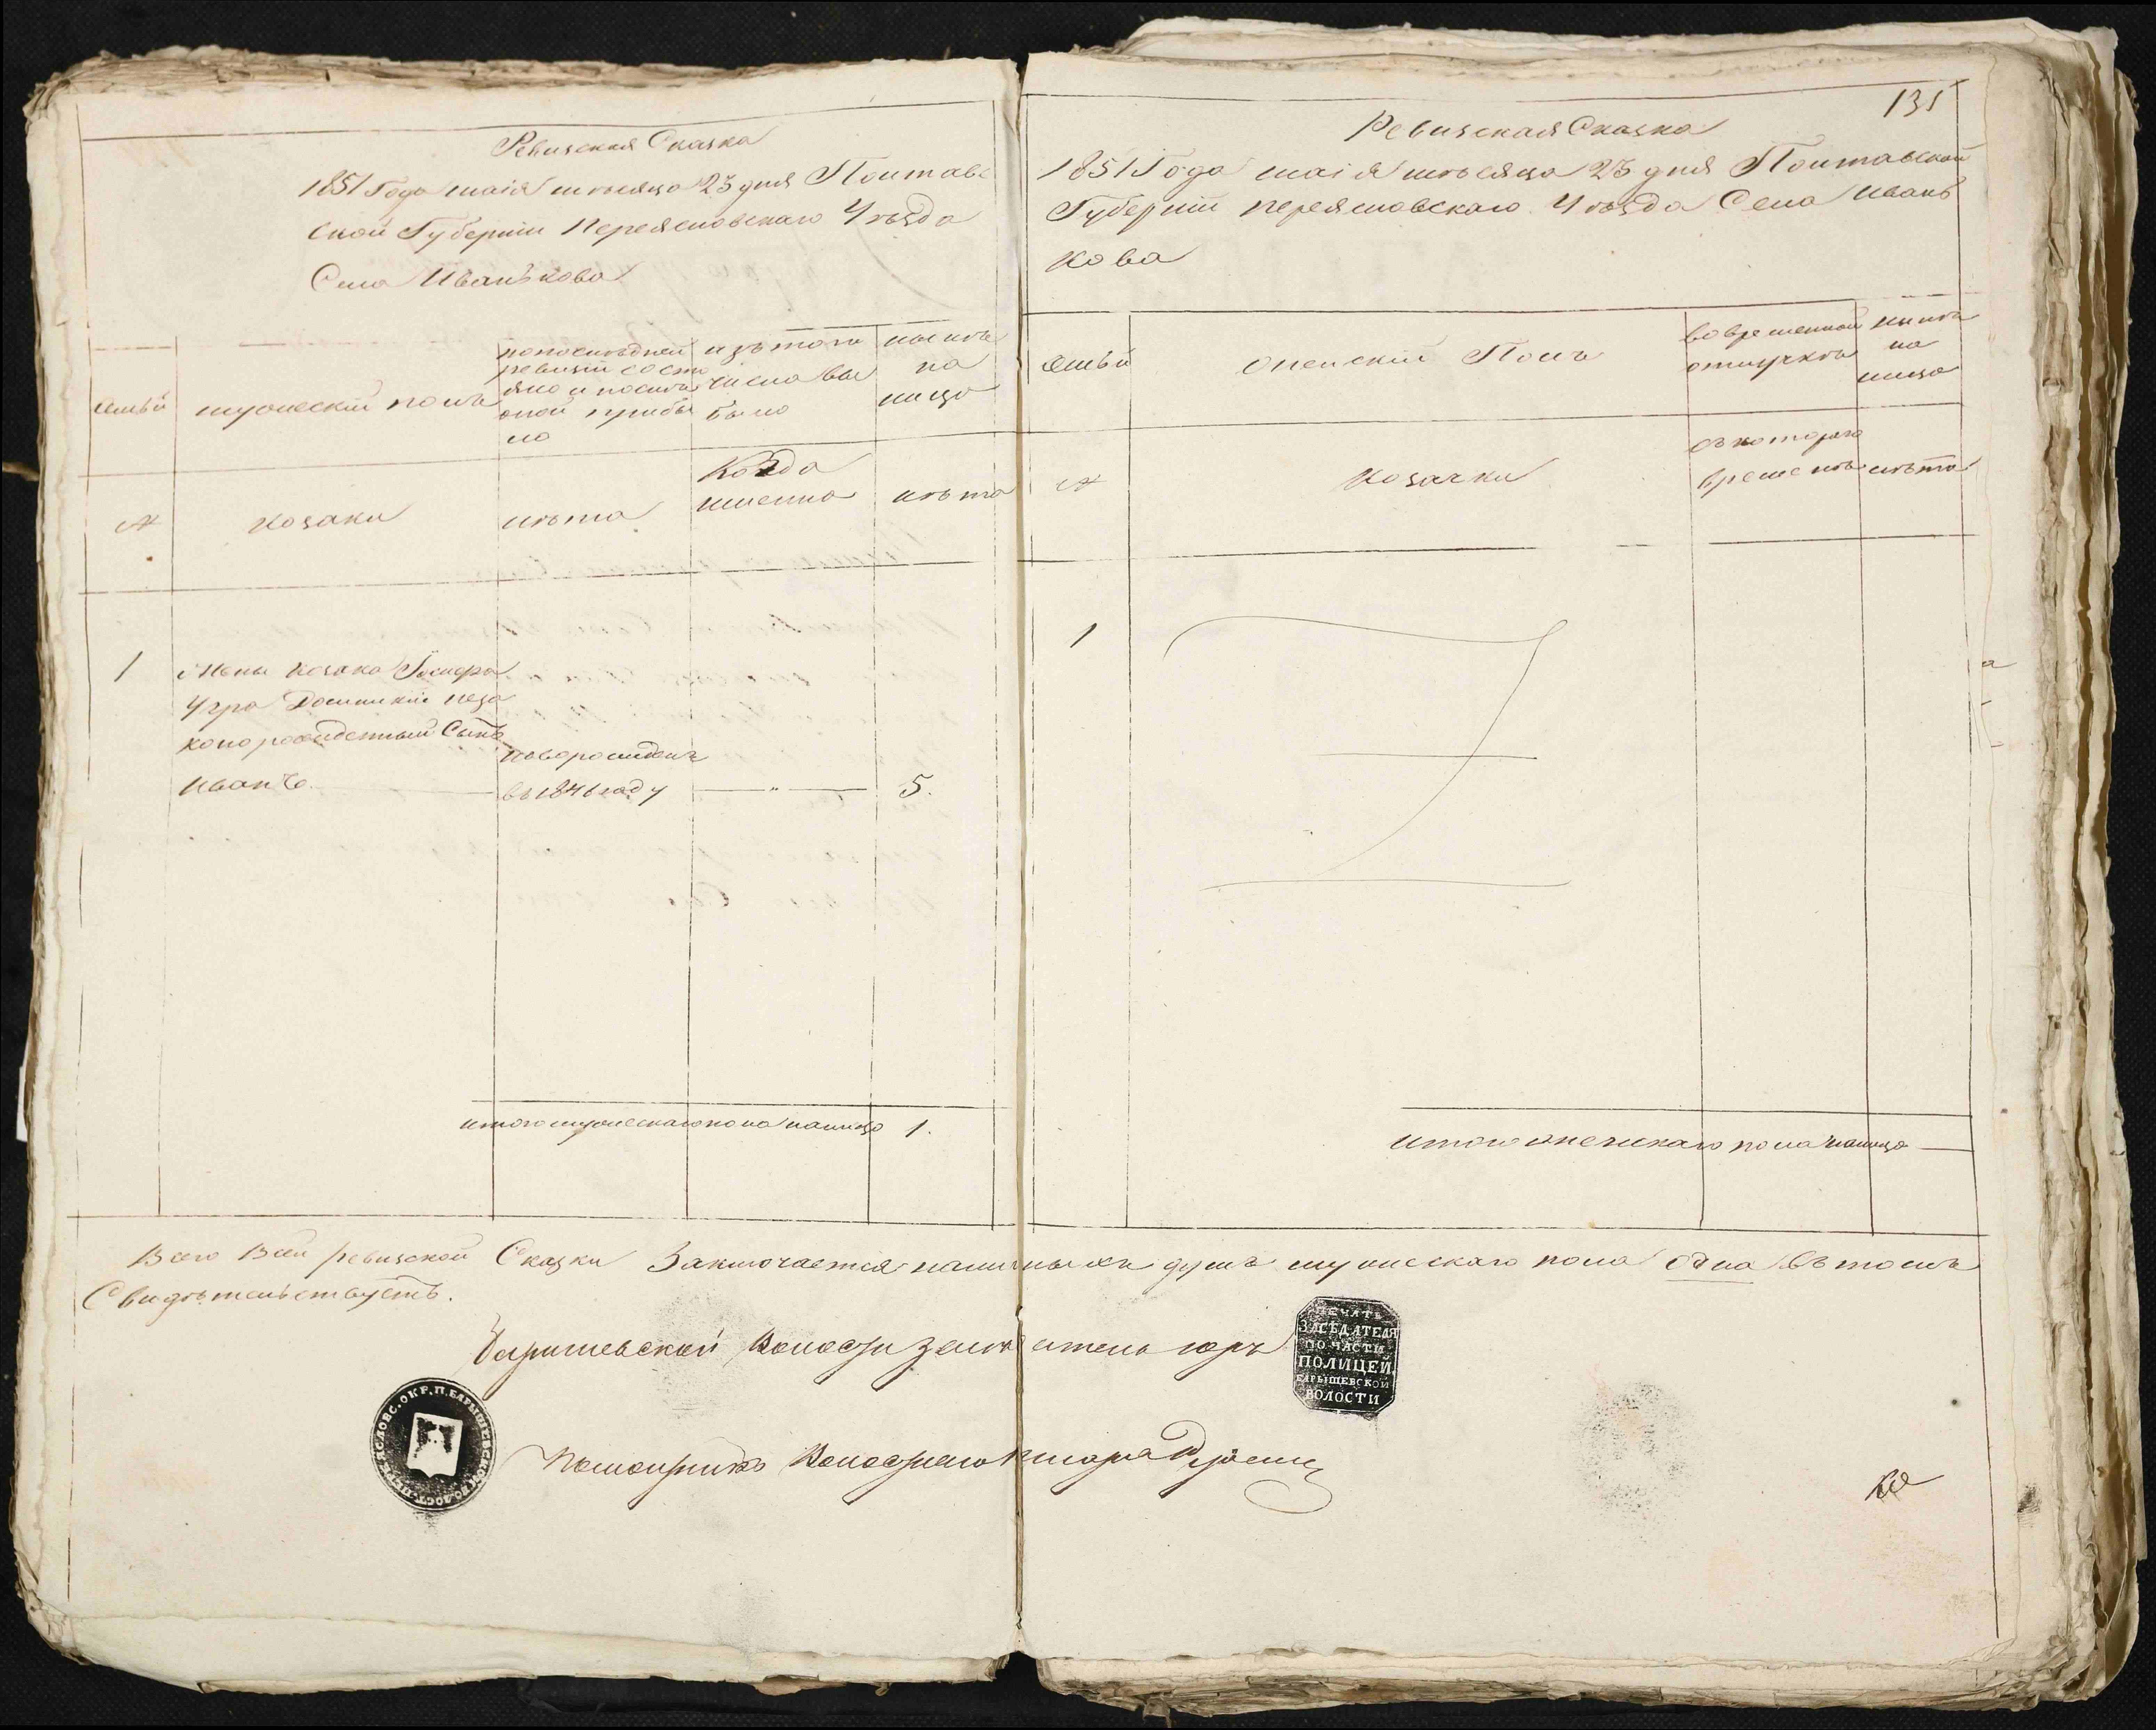 Ревизская Сказка
1851 Года маія мѣсяца 23 дня Полтавс
ской Губерніи Переяславскаго Уѣзда
Села Иванькова
Семьи
мужескій полъ
по последней
ревизіи состо
яло и после
оной прибы
ло
изътого
числа вы
было
ныне
на
лицо
№
Козаки
лѣта
Когда
именно
лѣта
1
Жены козака
Угра Домникіи неза
конорожденный Сынъ
Иванъ
новорожденъ
въ 1846 году
5.
итого мужескаго пола налицо 1.
131
Ревизская Сказка
1851 Года маія мѣсяца 23 дня Полтавской
Губерніи Переяславскаго Уѣзда Села Ивань
кова
Семьи
Женскій Полъ
во временной
отлучкѣ
ныне
на
лицо
№
Козачки
съ котораго
времени
лѣта
1
Итого женскаго пола налицо
Всего в сей ревизской Сказки Заключается наличныхъ душъ мужескаго пола одна въ томъ
Свидѣтельствуетъ.
Барышевской Волости
ПЕЧАТЬ
ЗАСѢДАТЕЛЯ
ПО ЧАСТИ
ПОЛИЦЕЙ
БАРЫШЕВСКОЙ
ВОЛОСТИ
Волостнаго писаря